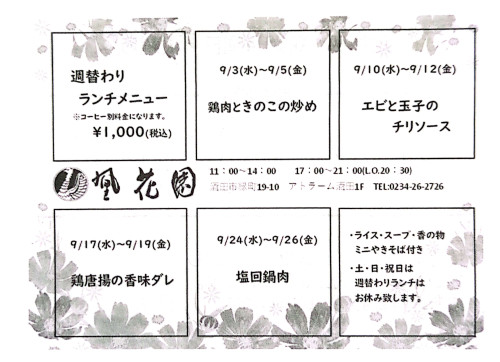 週替わり
ランチメニュー
※コーヒー別料金になります。
¥1,000(税込)
9/3(水)～9/5(金)
鶏肉ときのこの炒め
9/10(水)～9/12(金)
エビと玉子の
チリソース
凰花園
11：00～14：00　17：00～21：00(L.O.20：30)
酒田市緑町19-10　アトラーム酒田1F　TEL:0234-26-2726
9/17(水)～9/19(金)
鶏唐揚の香味ダレ
9/24(水)～9/26(金)
塩回鍋肉
・ライス・スープ・香の物
ミニやきそば付き
・土・日・祝日は
週替わりランチは
お休み致します。